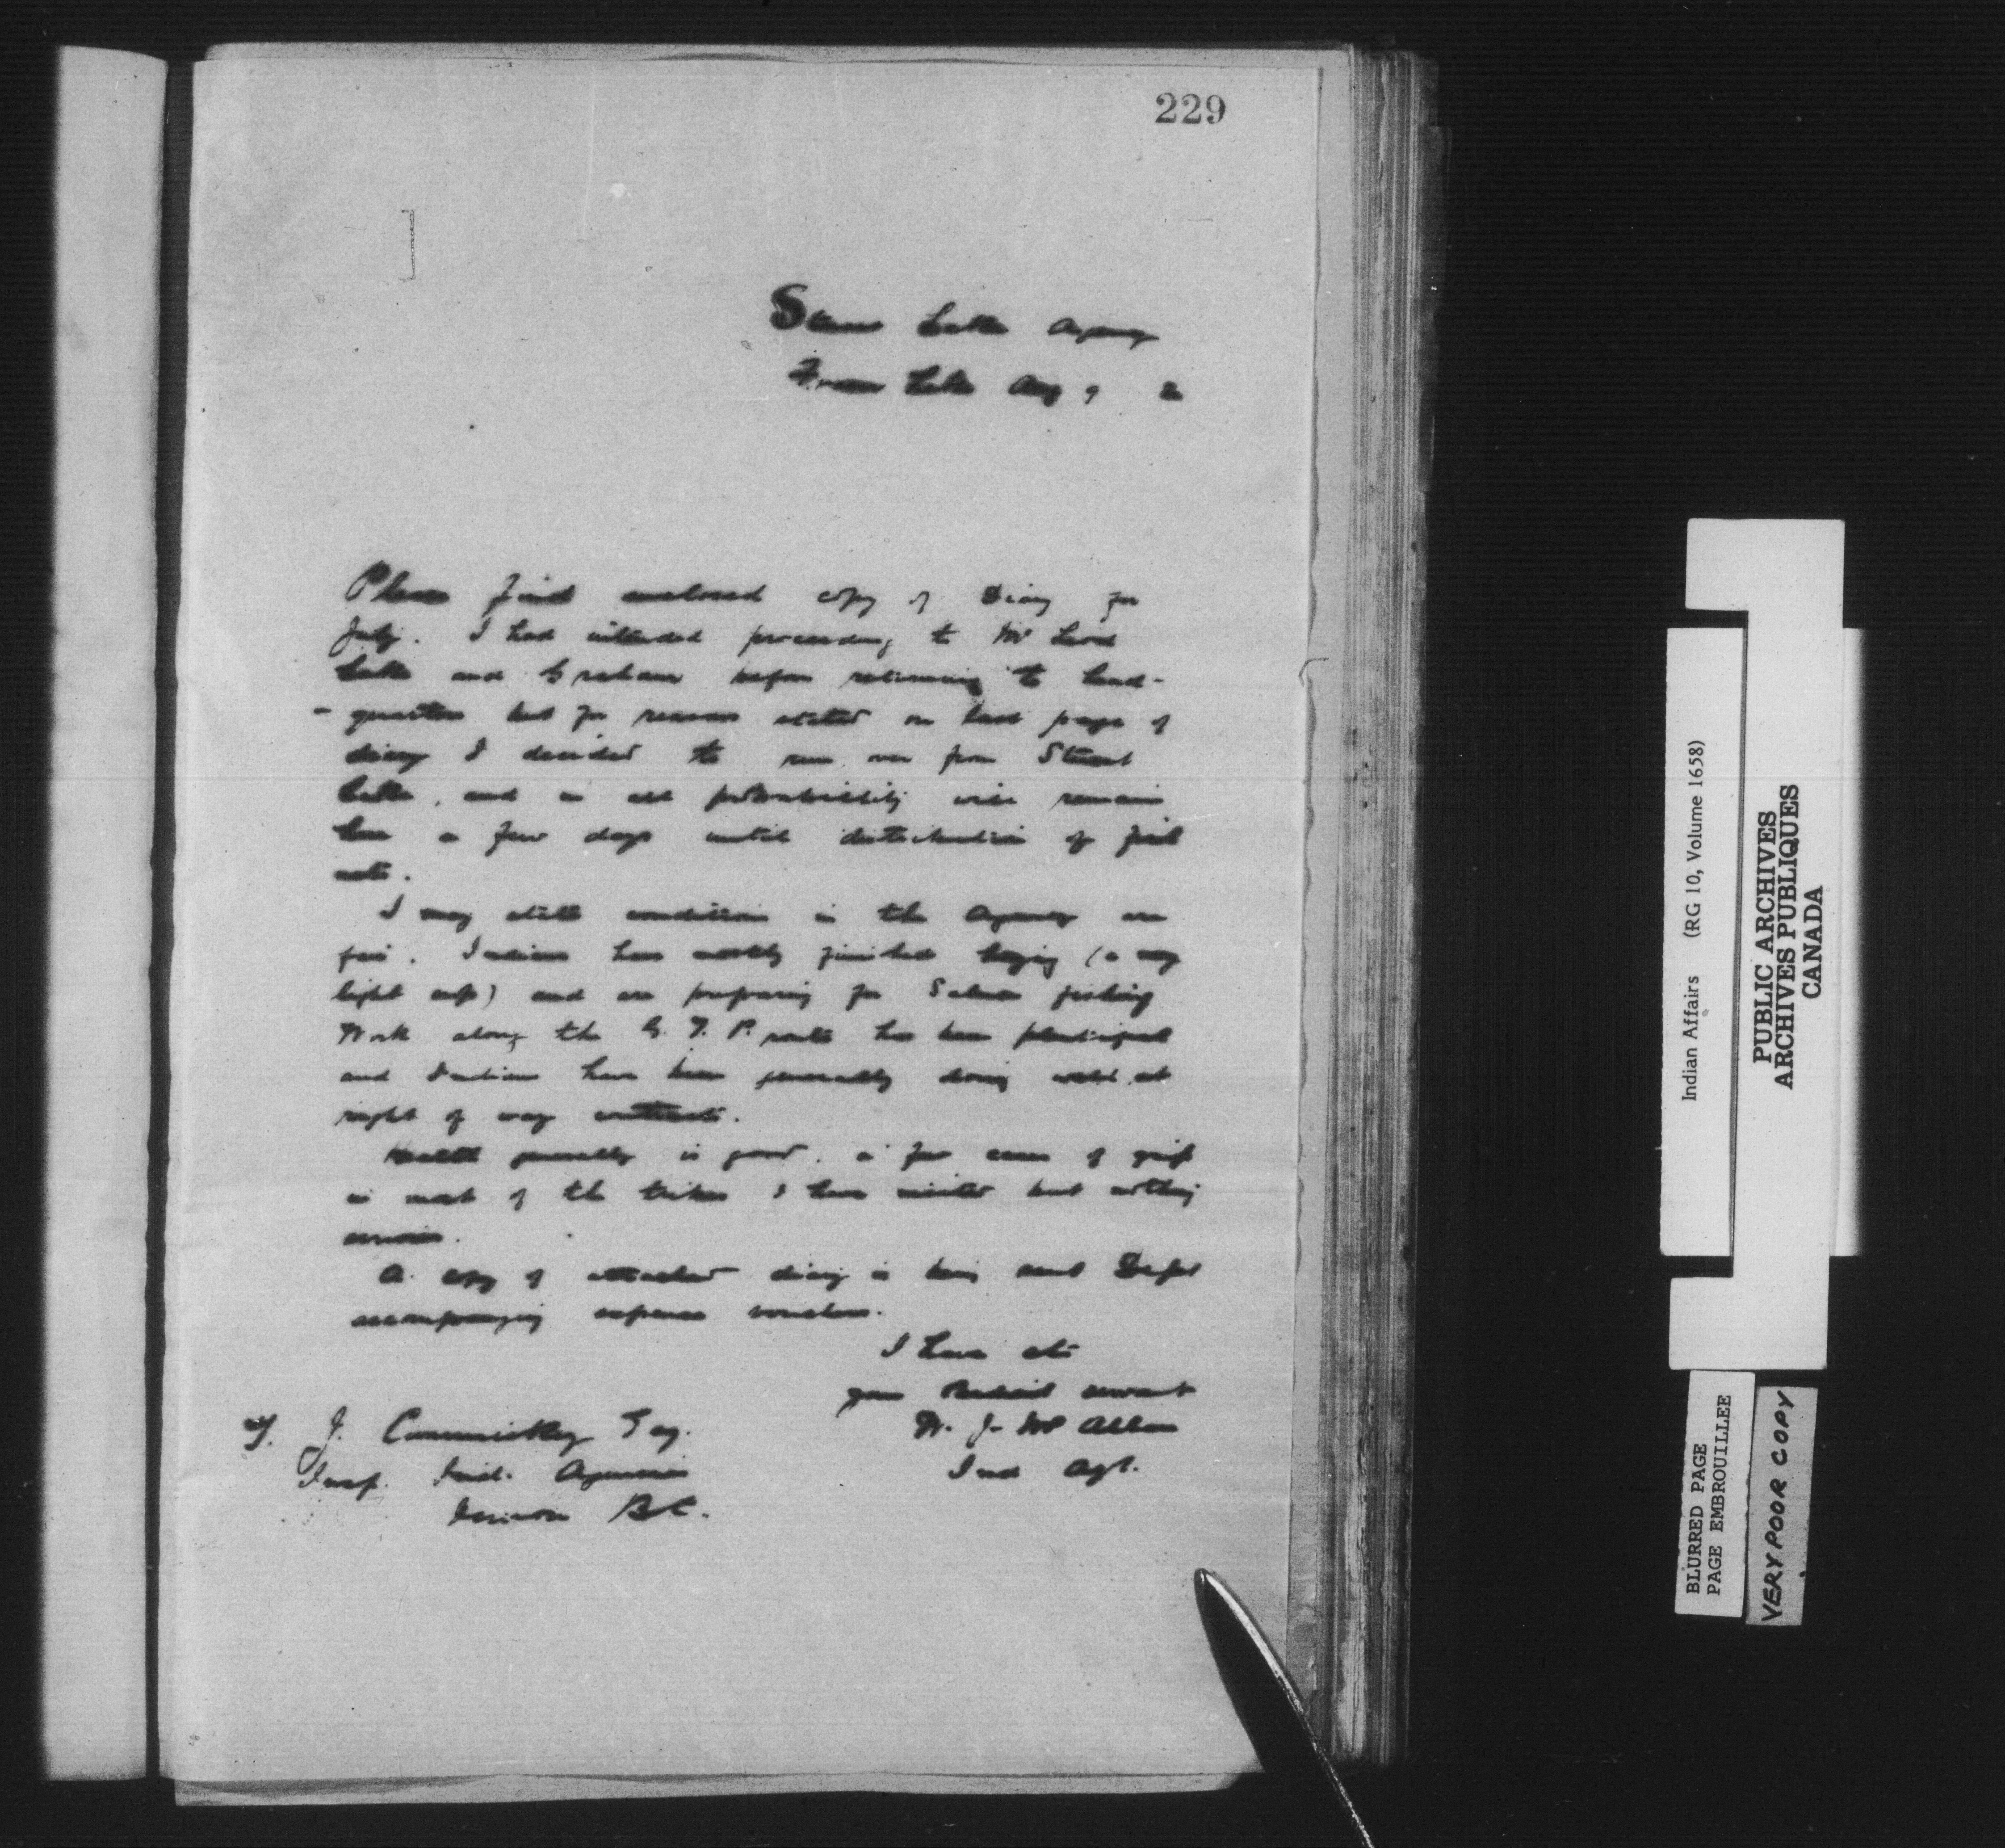 229
Lake Agency
Fraser Lake Aug 9
Please find enclosed copy of Diary for
July. I had intended proceeding to McLeod
Lake and Graham before returning to head-
- quarters but for reasons stated on last page of
diary I decided to run over from Stuart
Lake, and in all probability will remain
here a few days until distribution of fish
nets.
I may state conditions in the Agency are
fair. Indians have mostly finished haying (a very
light crop) and are preparing for Salmon fishing
Work along the G. T. P. route has been plentiful
and Indians have been generally doing well at
right of way contracts.
Health generally is good, a few cases of grip
in most of the tribes I have visited but nothing
serious.
A copy of attached diary is being sent Dept
accompanying expense vouchers.
I have etc
your servant
W. J. McAllan
Ind Agt.
J. Cummiskey Esq.
Insp. Ind. Agencies
Vernon B.C.
Indian Affairs (RG 10, Volume 1658)
PUBLIC ARCHIVES
ARCHIVES PUBLIQUES
CANADA
BLURRED PAGE
PAGE EMBROUILLEE
VERY POOR COPY